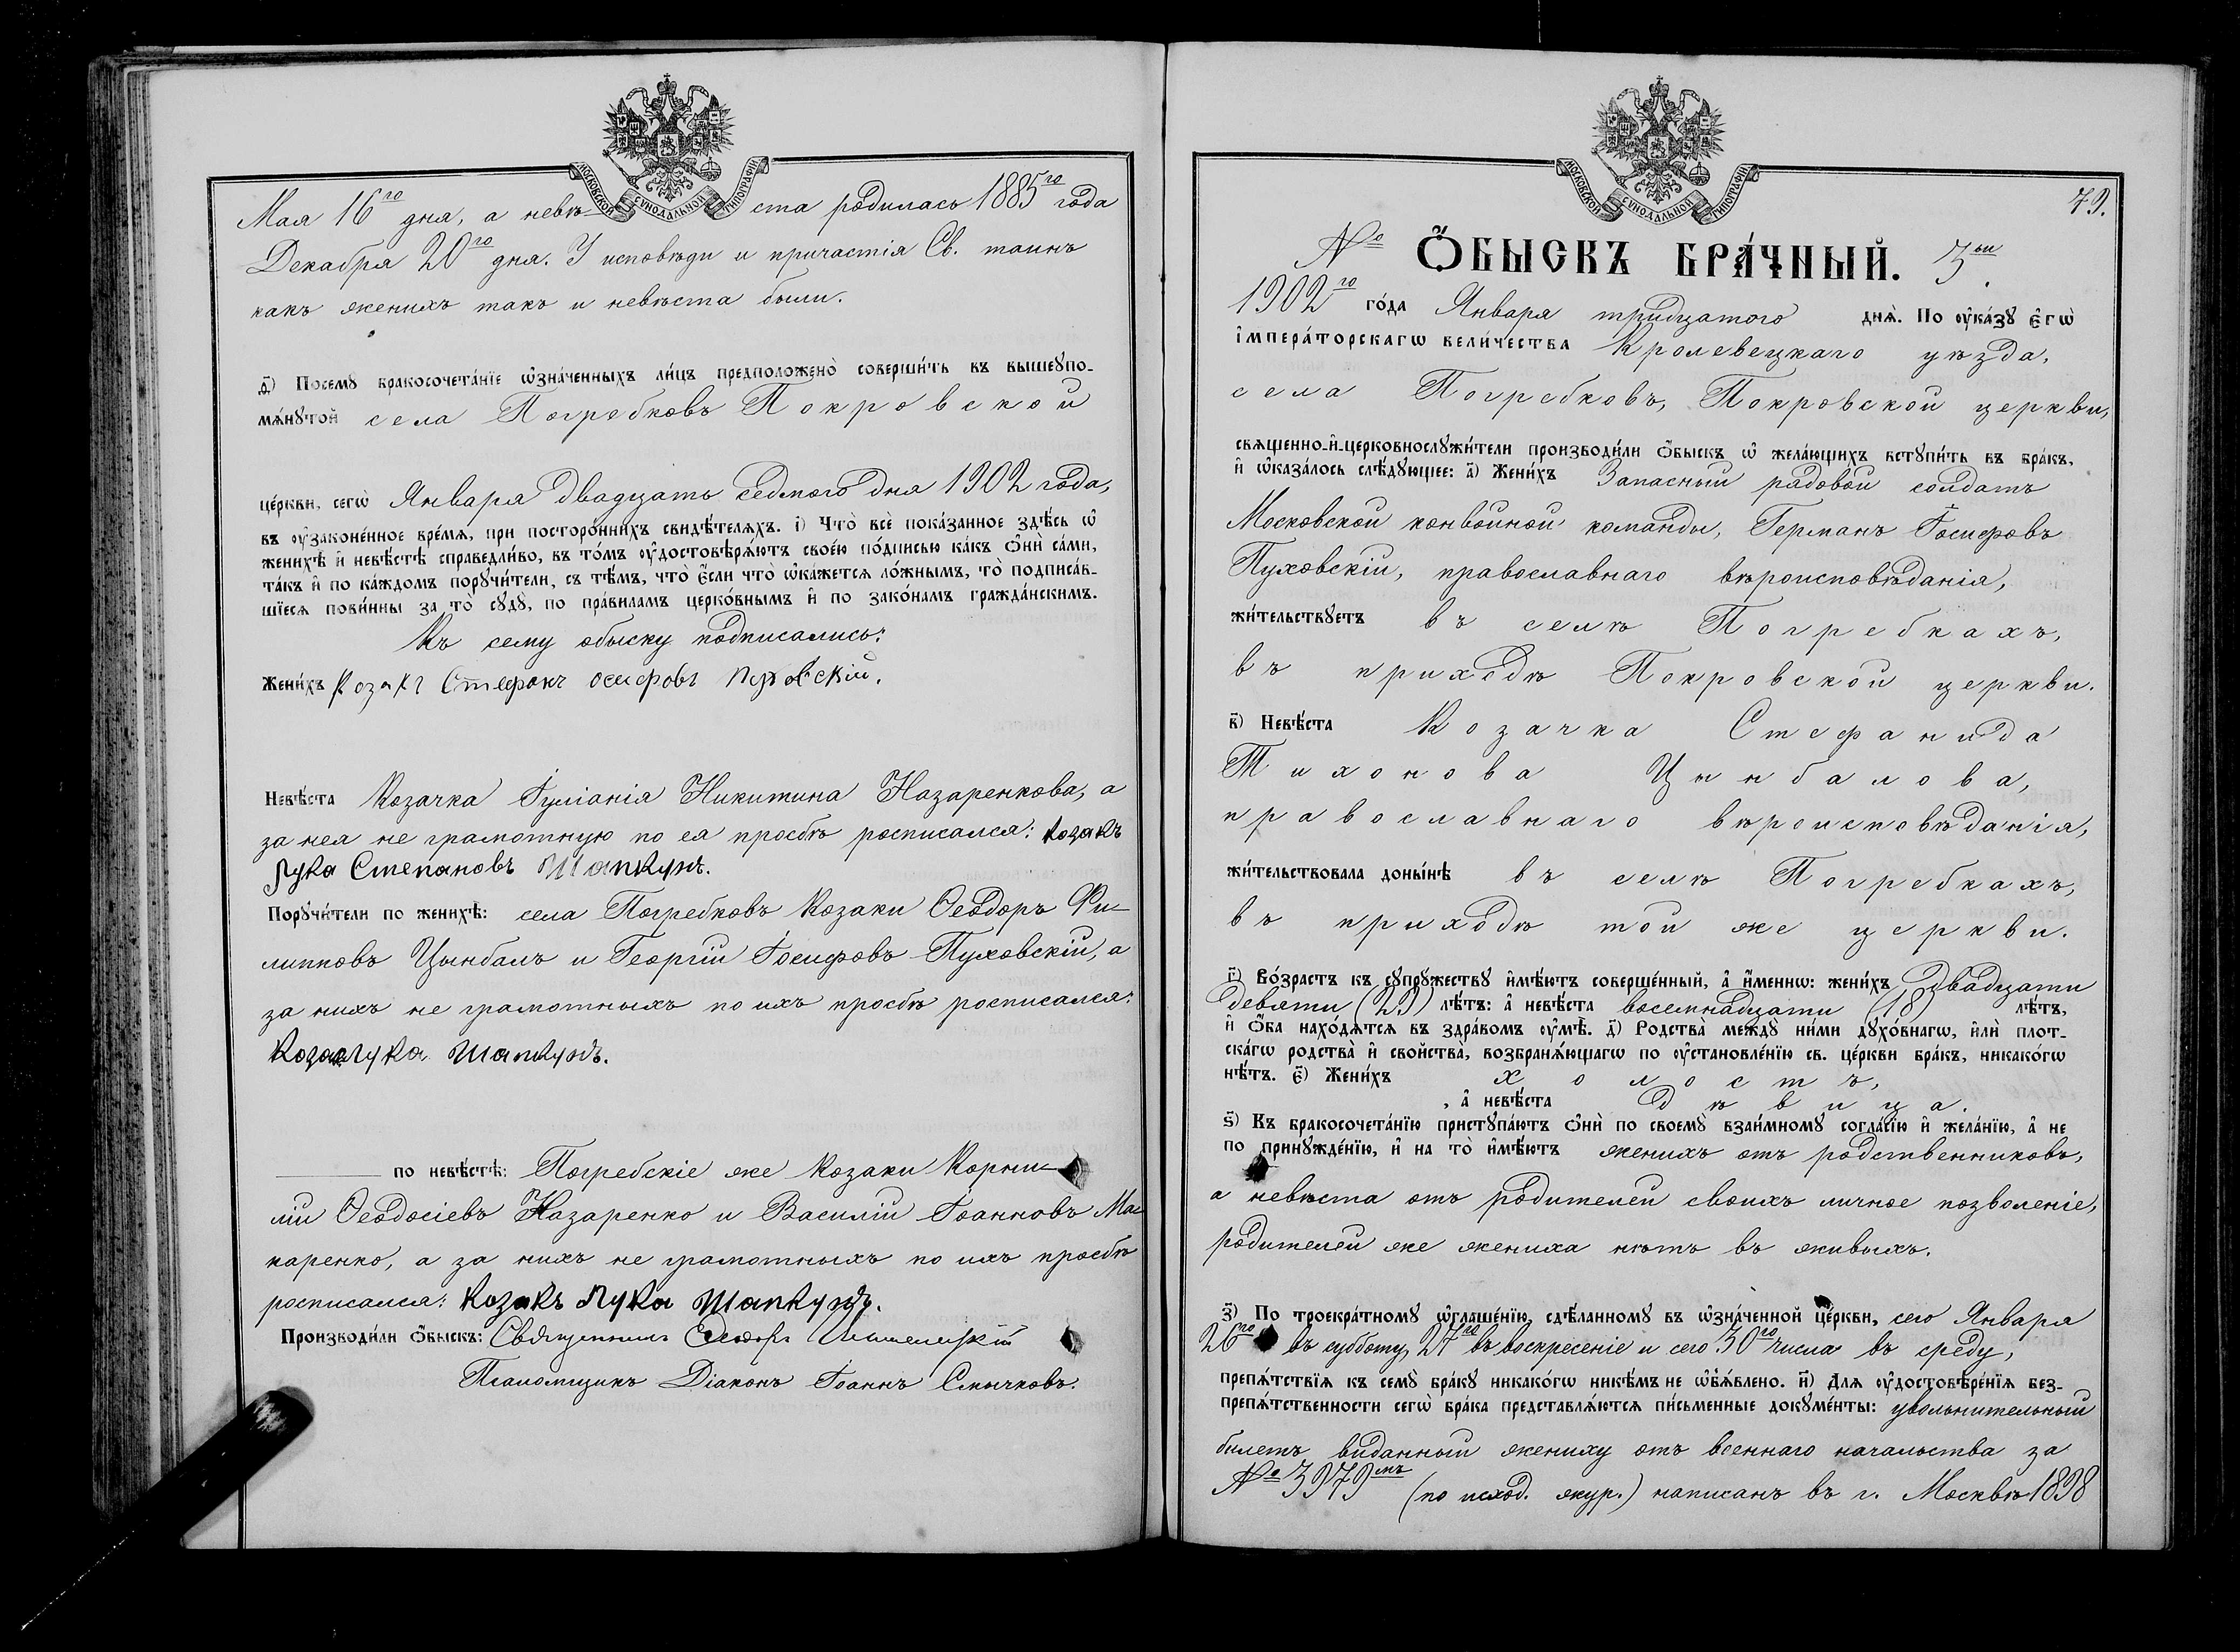 МОСКОВСКОЙ СУНОДАЛЬНОЙ ТИПОГРАФІИ
Мая 16го дня, а невѣ ста родилась 1885го года
Декабря 20го дня. У исповѣди и причастія Св. таинъ
какъ женихъ такъ и невѣста были.
д҃) Посемꙋ бракосочета́нїе ѡ҆зна́ченныхъ ли́цъ предположено̀ соверши́ть въ вышеꙋпо-
мѧ́нꙋтой села Погребковъ Покровской
це́ркви, сегѡ̀ Января двадцать седмого дня 1902 года,
въ ᲂу҆законе́нное вре́мѧ, при посторо́ннихъ свидѣ́телѧхъ. і҃) Что̀ всѐ пока́занное здѣ́сь ѡ҆
женихѣ̀ и҆ невѣ́стѣ справедли́во, въ то́мъ ᲂу҆достовѣрѧ́ютъ свое́ю по́дписью ка́къ ѻ҆нѝ са́ми,
та́къ и҆ по ка́ждомъ порꙋчи́тели, съ тѣ́мъ, что̀ є҆́сли что̀ ѡ҆ка́жетсѧ ло́жнымъ, то̀ подписа́в-
шїесѧ пови́нны за то̀ сꙋдꙋ̀, по пра́виламъ церко́внымъ и҆ по зако́намъ гражда́нскимъ.
Къ сему обыску подписались:
Жени́хъ Козакъ Стефанъ Осифовъ Пуховскій.
Невѣ́ста Козачка Іуліанія Никитина Назаренкова, а
за нея не грамотную по ея просьбѣ росписался: Козакъ
Лука Степановъ Шапкунъ.
Порꙋчи́тели по женихѣ̀: села Погребковъ Козаки Ѳеодоръ Фи-
липповъ Цынбалъ и Георгій Іосифовъ Пуховскій, а
за нихъ не грамотныхъ по ихъ просьбѣ росписался:
Козак Лука Шапкунъ.
по невѣ́стѣ: Погребскіе же Козаки Корни-
лій Ѳеодосіевъ Назаренко и Василій Іоанновъ Ма-
каренко, а за нихъ не грамотныхъ по ихъ просьбѣ
росписался: Козакъ Лука Шапкунъ.
Производи́ли ѻ҆́быскъ: Священникъ
Псаломщикъ Діаконъ Іоаннъ Смычковъ.
МОСКОВСКОЙ СУНОДАЛЬНОЙ ТИПОГРАФІИ
79.
№ Ѻ҆́БЫСКЪ БРА́ЧНЫЙ. 3ій
1902го го́да Января тридцатого днѧ̀. По ᲂу҆ка́зꙋ є҆гѡ̀
і҆мпера́торскагѡ вели́чества Кролевецкаго уѣзда,
села Погребковъ, Покровской церкви,
свѧщенно-и҆-церковнослꙋжи́тели производи́ли ѻ҆́быскъ ѡ҆ жела́ющихъ встꙋпи́ть въ бра́къ,
и҆ ѡ҆каза́лось слѣ́дꙋющее: а҃) Жени́хъ Запасный рядовой солдатъ
Московской конвойной команды, Германъ Іосифовъ
Пуховскій, православнаго вѣроисповѣданія,
жи́тельствꙋетъ въ селѣ Погребкахъ,
въ приходѣ Покровской церкви.
в҃) Невѣ́ста Козачка Стефанида
Тихонова Цынбалова,
православнаго вѣроисповѣданія,
жи́тельствовала доны́нѣ въ селѣ Погребкахъ,
въ приходѣ той же церкви.
г҃) Во́зрастъ къ сꙋпрꙋ́жествꙋ и҆мѣ́ютъ соверше́нный, а҆ и҆́меннѡ: жени́хъ двадцати
девяти (29) лѣ́тъ: а҆ невѣ́ста восемнадцати (18) лѣ́тъ,
и҆ ѻ҆́ба нахо́дѧтсѧ въ здра́вомъ ᲂу҆мѣ̀. д҃) Родства̀ междꙋ̀ ни́ми дꙋхо́внагѡ, и҆лѝ плот-
ска́гѡ родства̀ и҆ свойства̀, возбранѧ́ющагѡ по ᲂу҆становле́нїю св. це́ркви бра́къ, никако́гѡ
нѣ́тъ. є҃) Жени́хъ холостъ,
, а҆ невѣ́ста дѣвица.
ѕ҃) Къ бракосочета́нїю пристꙋпа́ютъ ѻ҆нѝ по своемꙋ̀ взаи́мномꙋ согла́сїю и҆ жела́нїю, а҆ не
по принꙋжде́нїю, и҆ на то̀ и҆мѣ́ютъ женихъ отъ родственниковъ,
а невѣста отъ родителей своихъ личное позволеніе,
родителей же жениха нѣтъ въ живыхъ.
з҃) По троекра́тномꙋ ѡ҆глаше́нїю, сдѣ́ланномꙋ въ ѡ҆зна́ченной це́ркви, сего Января
26го въ субботу, 27го въ воскресеніе и сего 30го числа въ среду,
препѧ́тствїѧ къ семꙋ̀ бра́кꙋ никако́гѡ никѣ́мъ не ѡ҆б̾ѧ́влено. и҃) Для ᲂу҆достовѣре́нїѧ без-
препѧ́тственности сегѡ̀ бра́ка представлѧ́ютсѧ пи́сьменные докꙋме́нты: увольнительный
билетъ виданный жениху отъ военнаго начальства за
№ 3979мъ (по исход. жур.) написанъ въ г. Москвѣ 1898